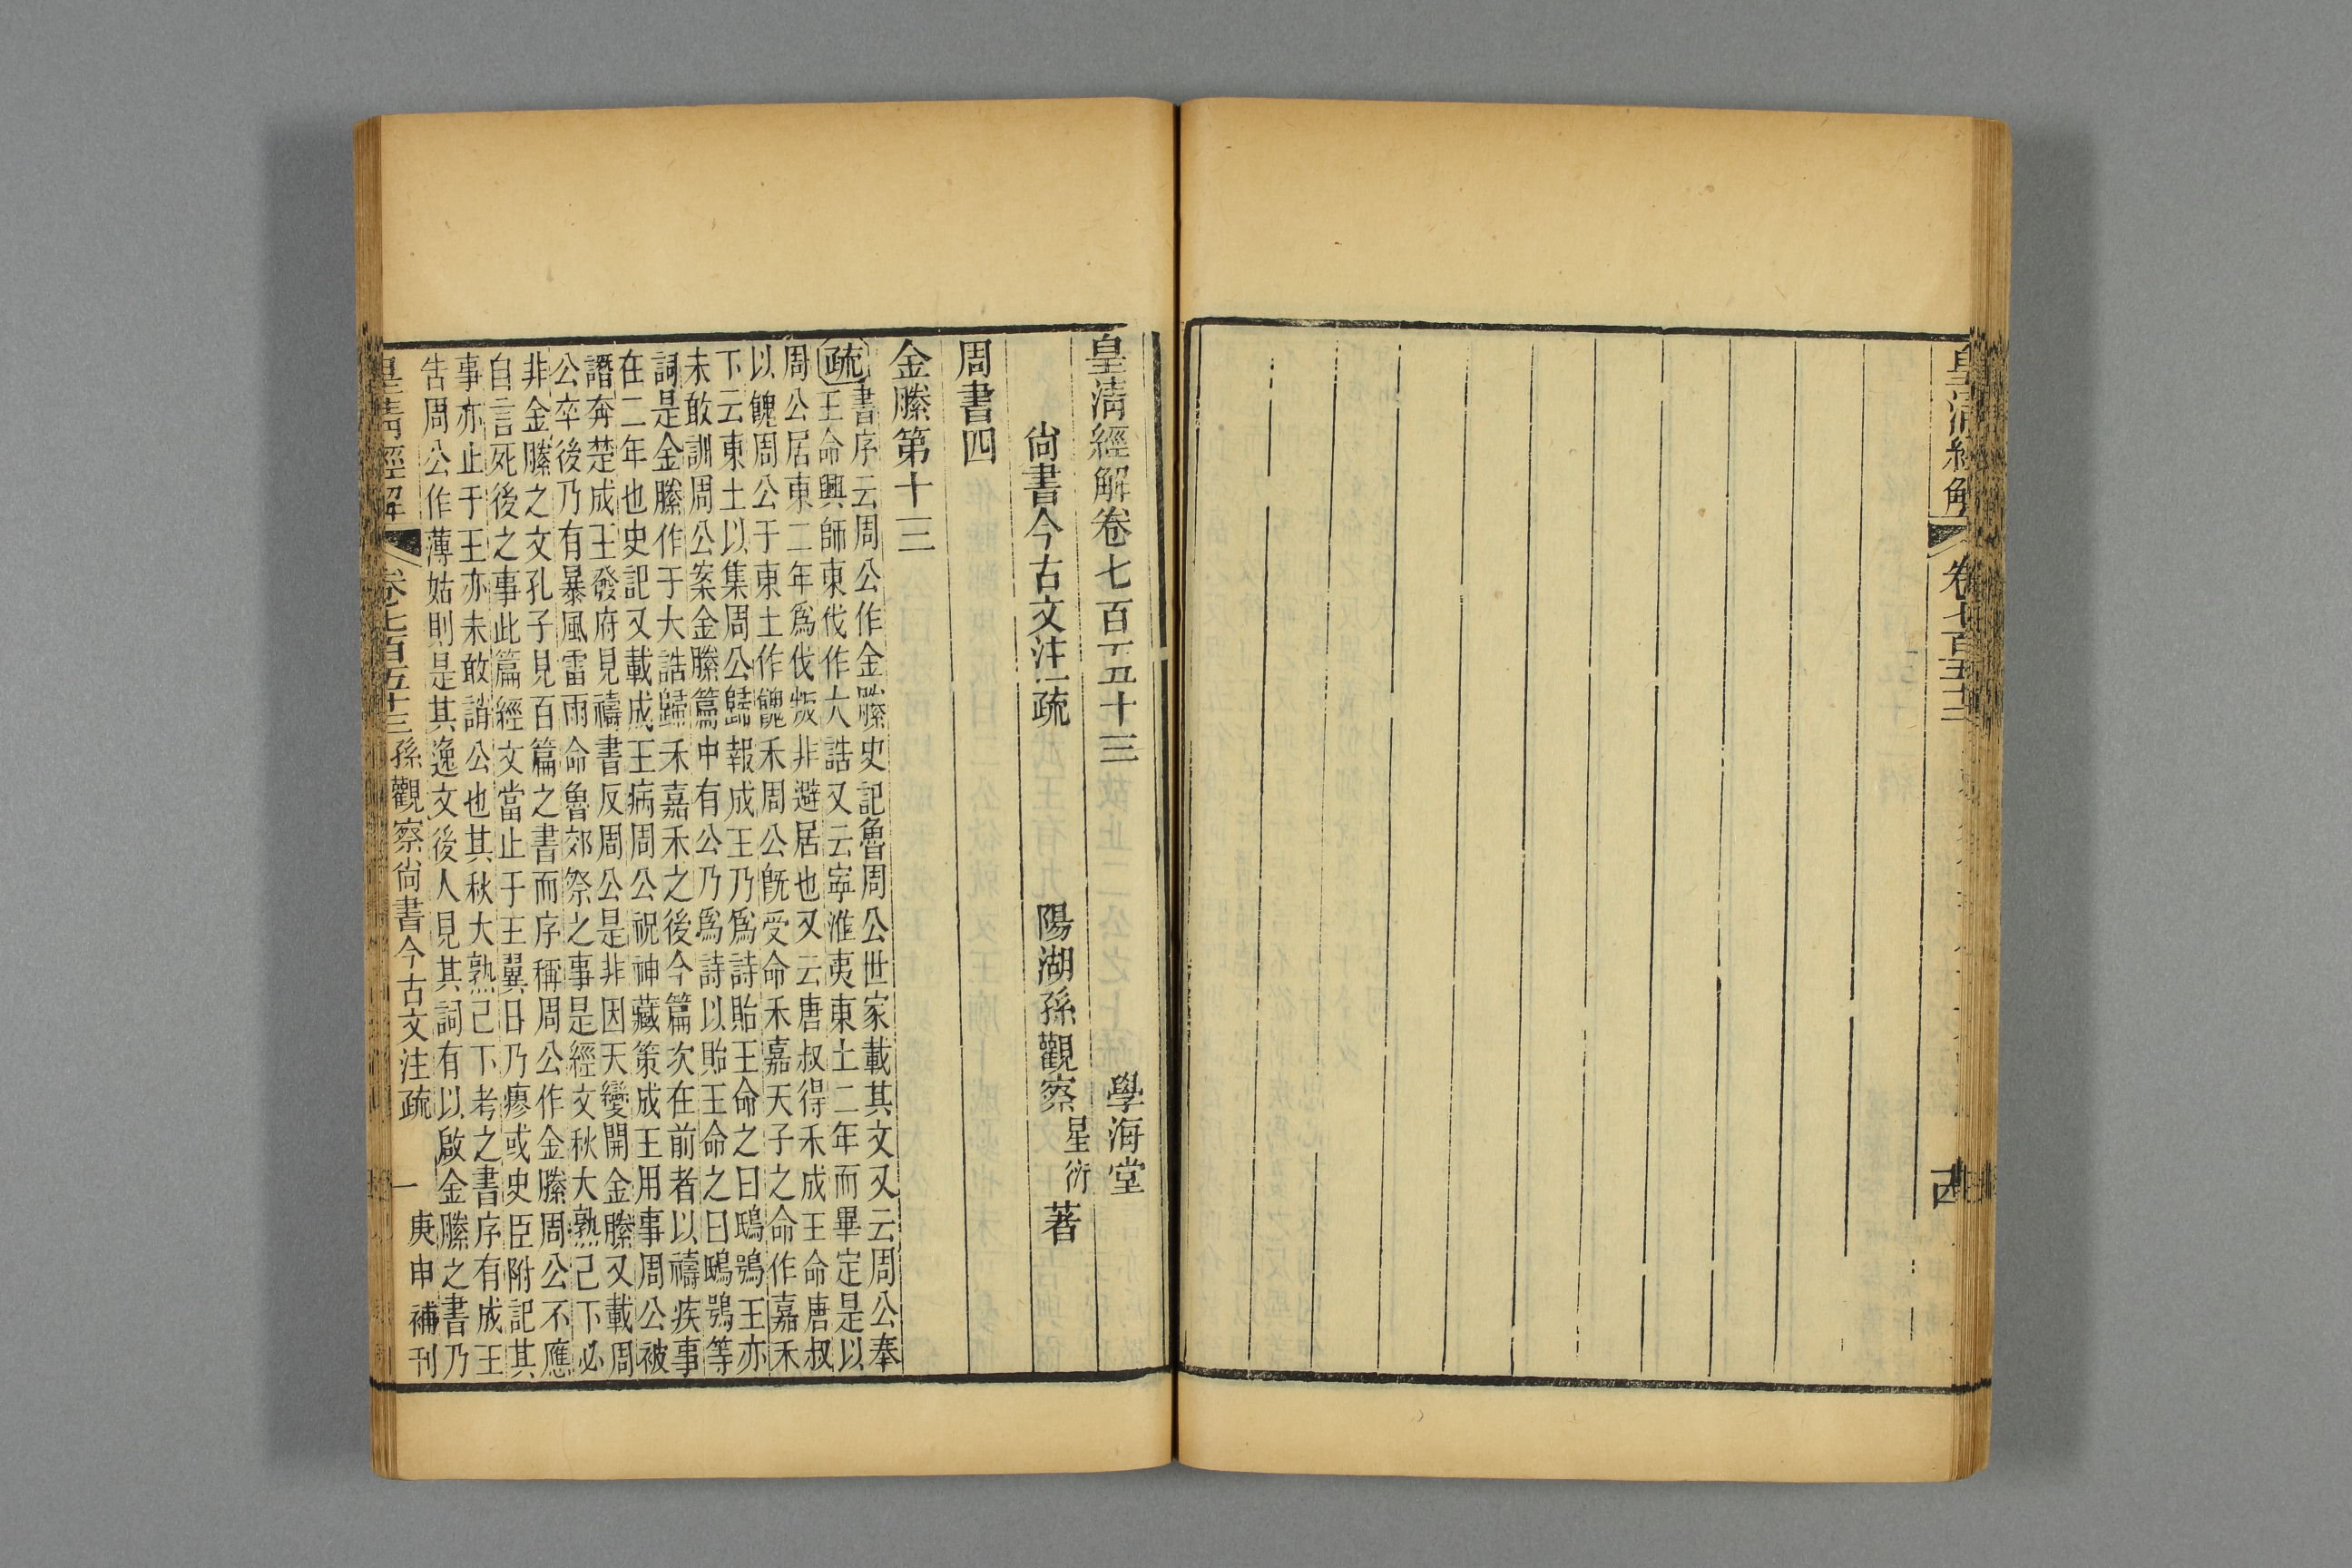 皇清經解
卷七百五十二
皇清經解卷七百五十三
學海堂
尙書今古文注疏
陽湖孫觀察星衍著
周書四
金縢第十三
疏
書序云周公作金縢史記魯周公世家載其文又云周公奉
王命興師東伐作大誥又云寧淮夷東土二年而畢定是以
周公居東二年爲伐叛非避居也又云唐叔得禾成王命唐叔
以餽周公于東土作餽禾周公旣受命禾嘉天子之命作嘉禾
下云東土以集周公歸報成王乃爲詩貽王命之曰鴟鴞王亦
未敢訓周公案金縢篇中有公乃爲詩以貽王命之曰鴟鴞等
詞是金縢作于大誥歸禾嘉禾之後今篇次在前者以禱疾事
在二年也史記又載成王病周公祝神藏策成王用事周公被
譖奔楚成王發府見禱書反周公是非因天變開金縢又載周
公卒後乃有暴風雷雨命魯郊祭之事是經文秋大熟己下必
非金縢之文孔子見百篇之書而序稱周公作金縢周公不應
自言死後之事此篇經文當止于王翼日乃瘳或史臣附記其
事亦止于王亦未敢誚公也其秋大熟己下考之書序有成王
告周公作薄姑則是其逸文後人見其詞有以啟金縢之書乃
皇清經解
卷七百五十三
孫觀察尙書今古文注疏
一
庚申補刊